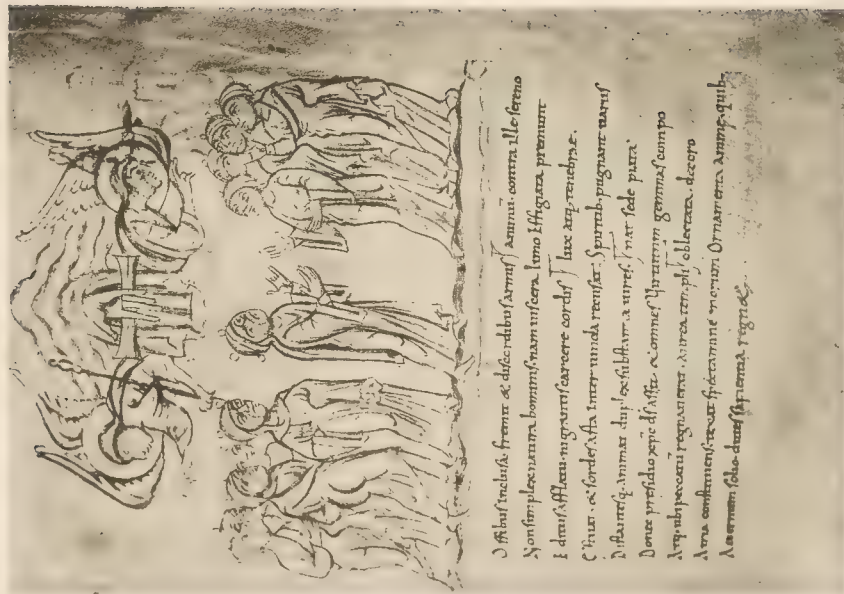 Ossibus inclusa. fremit & discordibus armis animū. contra ille sereno
Non simplex natura hominis. nam uiscera limo Effigiata premunt
Editus afflatu. nigrantis carcere cordis lux atq; tenebrae.
Estuat. & sordes arta inter uincla recusat. Spiritib. pugnant uariis
Distantesq. animat duplex substantia uires. nat sede piata
Donec presidio xp̄c d̄s assit & omnes Uirtutum gemmas compo
Atq. ubi peccatū regnauerat. aurea templi oblectata decoro
Atria constituens. texat spectamine morum Ornamenta anime. quib;
Aeternum solio. diues sapientia regn&.